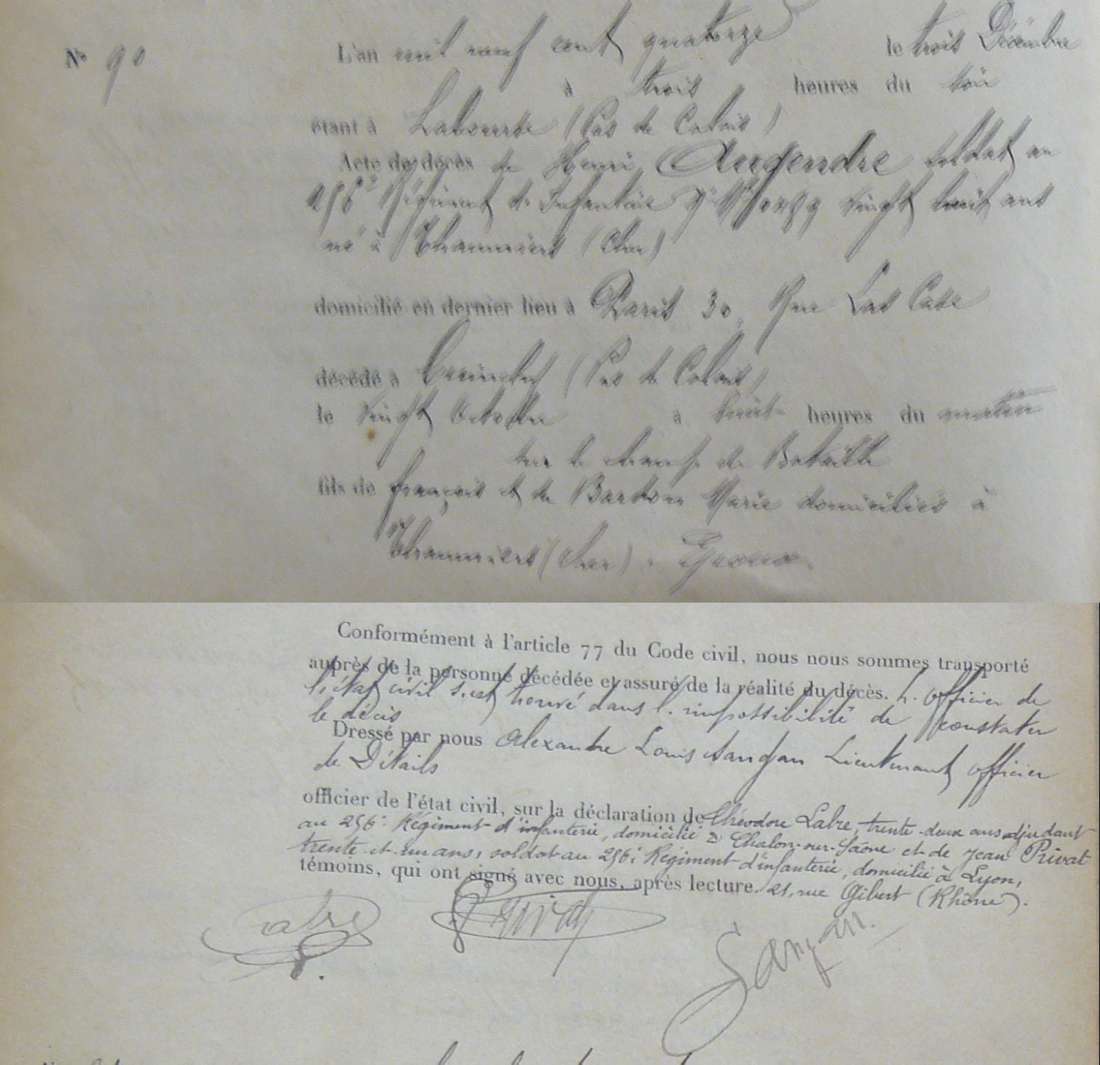 N° 90 L'an mil neuf cent quatorze le trois Décembre
à trois heures du soir
étant à Labourse (Pas de Calais)
Acte de décès de Henri Augendre soldat au
256e Régiment de Infanterie vingt huit ans
né à Thaumiers (Cher)
domicilié en dernier lieu à Paris 30, Rue Las Case
décédé à (Pas de Calais)
le vingt Octobre à huit heures du matin
sur le champ de Bataille
fils de françois et de Bardon Marie domiciliés à
Thaumiers (Cher).
Conformément à l'article 77 du Code civil, nous nous sommes transporté
auprès de la personne décédée et assuré de la réalité du décès. L. officier de
l'état civil s'est trouvé dans l. impossibilité de constater
le décès
Dressé par nous Alexandre Louis Sangan Lieutenant officier
de Détails
officier de l'état civil, sur la déclaration de Théodore Labre, trente-deux ans adjudant
au 256e Régiment d'infanterie, domicilié à Chalon-sur-Saône et de Jean Privat
trente-et-un ans, soldat au 256e Régiment d'infanterie, domicilié à Lyon,
témoins, qui ont signé avec nous, après lecture. 21, rue Gibert (Rhône).
Labre Privat
Sangan